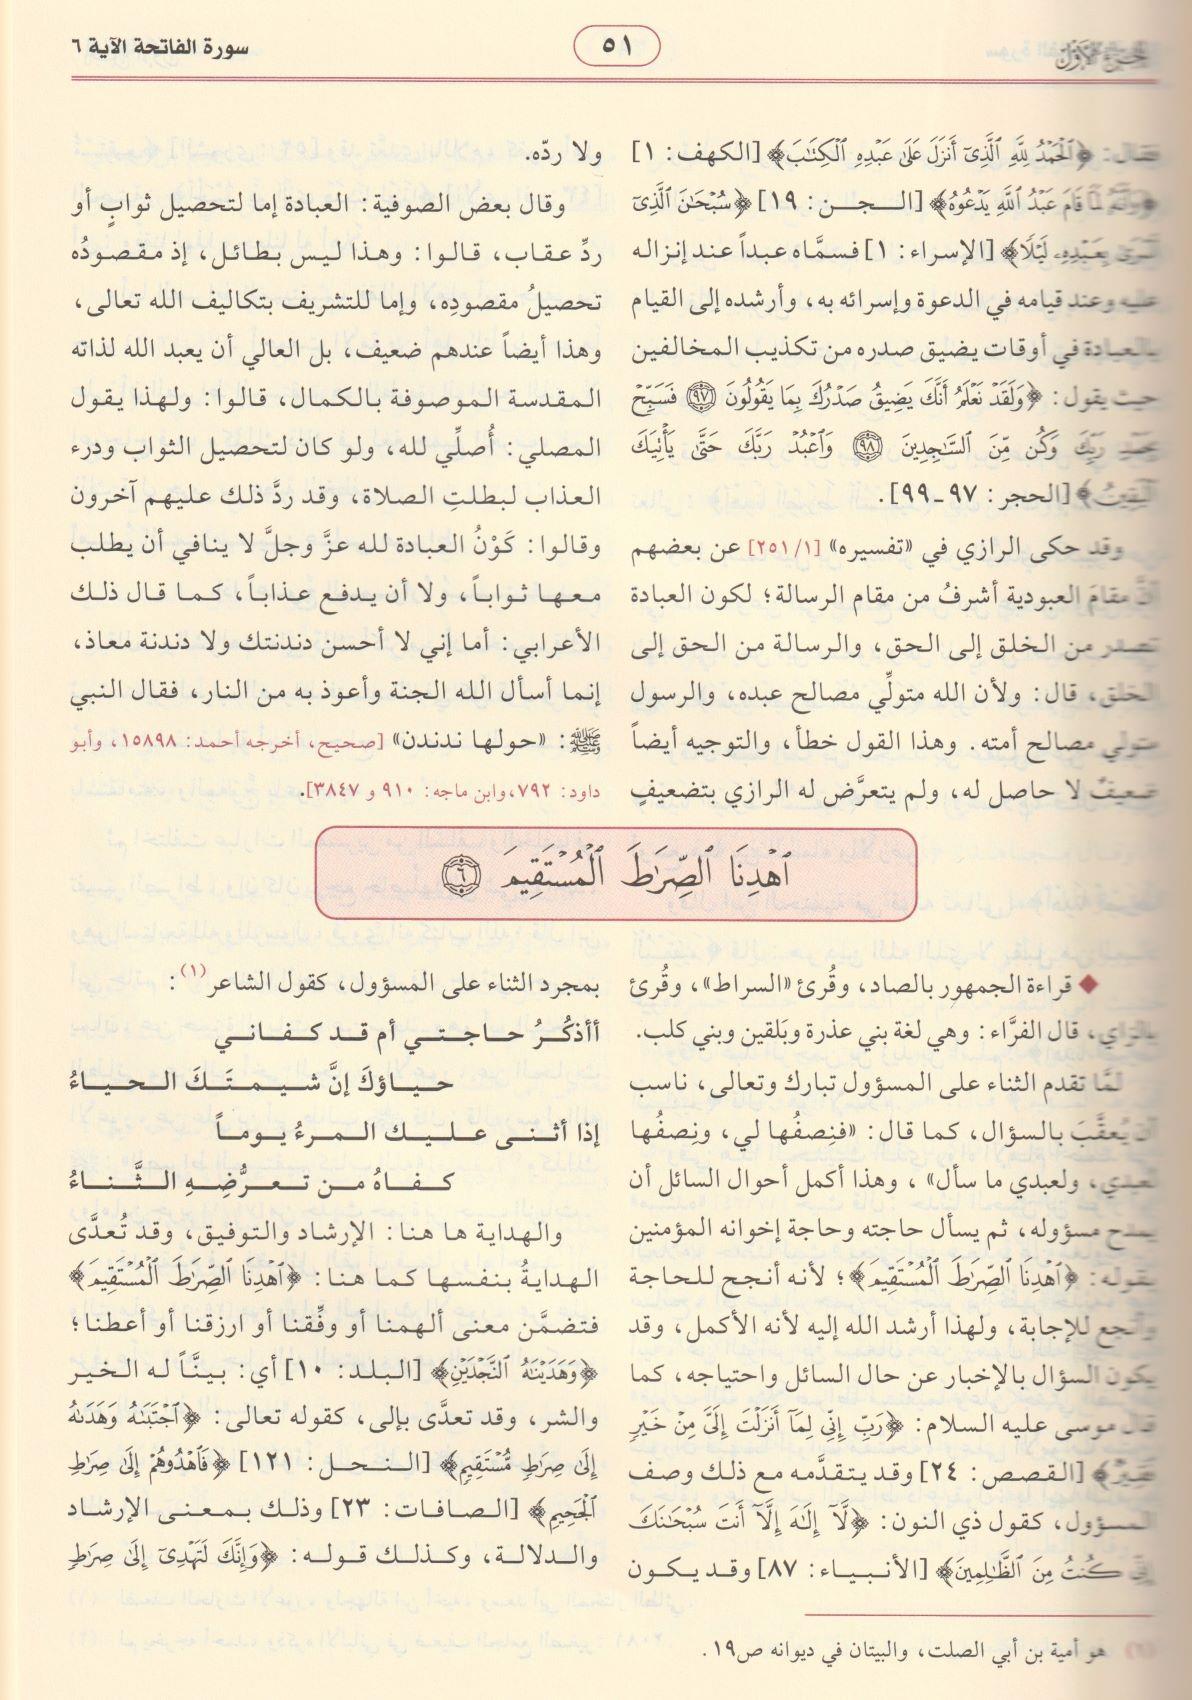 الجزء الأول
٥١
سورة الفاتحة الآية ٦
فقال: ﴿ٱلۡحَمۡدُ لِلَّهِ ٱلَّذِيٓ أَنزَلَ عَلَىٰ عَبۡدِهِ ٱلۡكِتَٰبَ﴾ [الكهف: ١]
﴿وَأَنَّهُۥ لَمَّا قَامَ عَبۡدُ ٱللَّهِ يَدۡعُوهُ﴾ [الـــجـــن: ١٩] ﴿سُبۡحَٰنَ ٱلَّذِيٓ
أَسۡرَىٰ بِعَبۡدِهِۦ لَيۡلًا﴾ [الإسراء: ١] فسمَّاه عبداً عند إنزاله
عليه وعند قيامه في الدعوة وإسرائه به، وأرشده إلى القيام
بالعبادة في أوقات يضيق صدره من تكذيب المخالفين
حيث يقول: ﴿وَلَقَدۡ نَعۡلَمُ أَنَّكَ يَضِيقُ صَدۡرُكَ بِمَا يَقُولُونَ ٩٧ فَسَبِّحۡ
بِحَمۡدِ رَبِّكَ وَكُن مِّنَ ٱلسَّٰجِدِينَ ٩٨ وَٱعۡبُدۡ رَبَّكَ حَتَّىٰ يَأۡتِيَكَ
ٱلۡيَقِينُ﴾ [الحجر: ٩٧-٩٩].
وقد حكى الرازي في «تفسيره» [٢٥١/١] عن بعضهم
أنَّ مقامَ العبودية أشرفُ من مقام الرسالة؛ لكون العبادة
تصدر من الخلق إلى الحق، والرسالة من الحق إلى
الخلق، قال: ولأن الله متولِّي مصالح عبده، والرسول
متولي مصالح أمته. وهذا القول خطأ، والتوجيه أيضاً
ضعيفٌ لا حاصل له، ولم يتعرَّض له الرازي بتضعيفٍ
ولا ردّه.
وقال بعض الصوفية: العبادة إما لتحصيل ثوابٍ أو
ردِّ عقاب، قالوا: وهذا ليس بطائل، إذ مقصودُه
تحصيلُ مقصودِه، وإما للتشريف بتكاليف الله تعالى،
وهذا أيضاً عندهم ضعيف، بل العالي أن يعبد الله لذاته
المقدسة الموصوفة بالكمال، قالوا: ولهذا يقول
المصلي: أُصلِّي لله، ولو كان لتحصيل الثواب ودرء
العذاب لبطلتِ الصلاة، وقد ردَّ ذلك عليهم آخرون
وقالوا: كَوْنُ العبادة لله عزَّ وجلَّ لا ينافي أن يطلب
معها ثواباً، ولا أن يدفع عذاباً، كما قال ذلك
الأعرابي: أما إني لا أحسن دندنتك ولا دندنة معاذ،
إنما أسأل الله الجنة وأعوذ به من النار، فقال النبي
ﷺ: «حولها ندندن» [صحيح، أخرجه أحمد: ١٥٨٩٨، وأبو
داود: ٧٩٢، وابن ماجه: ٩١٠ و ٣٨٤٧].
ٱهۡدِنَا ٱلصِّرَٰطَ ٱلۡمُسۡتَقِيمَ ٦
◆ قراءة الجمهور بالصاد، وقُرئ «السراط»، وقُرئ
بالزاي، قال الفرَّاء: وهي لغة بني عذرة وبَلقين وبني كلب.
لمَّا تقدم الثناء على المسؤول تبارك وتعالى، ناسب
أن يُعقَّبَ بالسؤال، كما قال: «فنِصفُها لي، ونِصفُها
لعبدي، ولعبدي ما سأل»، وهذا أكمل أحوال السائل أن
يمدح مسؤوله، ثم يسأل حاجته وحاجة إخوانه المؤمنين
بقوله: ﴿ٱهۡدِنَا ٱلصِّرَٰطَ ٱلۡمُسۡتَقِيمَ﴾؛ لأنه أنجح للحاجة
وأنجع للإجابة، ولهذا أرشد الله إليه لأنه الأكمل، وقد
يكون السؤال بالإخبار عن حال السائل واحتياجه، كما
قال موسى عليه السلام: ﴿رَبِّ إِنِّي لِمَآ أَنزَلۡتَ إِلَيَّ مِنۡ خَيۡرٖ
فَقِيرٞ﴾ [القصص: ٢٤] وقد يتقدَّمه مع ذلك وصف
المسؤول، كقول ذي النون: ﴿لَّآ إِلَٰهَ إِلَّآ أَنتَ سُبۡحَٰنَكَ
إِنِّي كُنتُ مِنَ ٱلظَّٰلِمِينَ﴾ [الأنبياء: ٨٧] وقد يكون
بمجرد الثناء على المسؤول، كقول الشاعر(١):
أأذكُـرُ حـاجـتـي أم قد كـفـانـي
حـيـاؤكَ إنَّ شـيـمـتَـكَ الـحـيـاءُ
إذا أثـنـى عـلـيـك الـمـرءُ يـومـاً
كـفـاهُ مـن تـعـرُّضِـهِ الـثَّـنـاءُ
والهداية ها هنا: الإرشاد والتوفيق، وقد تُعدَّى
الهدايةُ بنفسها كما هنا: ﴿ٱهۡدِنَا ٱلصِّرَٰطَ ٱلۡمُسۡتَقِيمَ﴾
فتضمَّن معنى ألهمنا أو وفِّقنا أو ارزقنا أو أعطنا؛
﴿وَهَدَيۡنَٰهُ ٱلنَّجۡدَيۡنِ﴾ [البلد: ١٠] أي: بينَّاً له الخير
والشر، وقد تعدَّى بإلى، كقوله تعالى: ﴿ٱجۡتَبَىٰهُ وَهَدَىٰهُ
إِلَىٰ صِرَٰطٖ مُّسۡتَقِيمٖ﴾ [الـنـحـل: ١٢١] ﴿فَٱهۡدُوهُمۡ إِلَىٰ صِرَٰطِ
ٱلۡجَحِيمِ﴾ [الـصـافـات: ٢٣] وذلك بـمـعـنـى الإرشاد
والـدلالـة، وكـذلـك قـولـه: ﴿وَإِنَّكَ لَتَهۡدِيٓ إِلَىٰ صِرَٰطٖ
هو أمية بن أبي الصلت، والبيتان في ديوانه ص١٩.